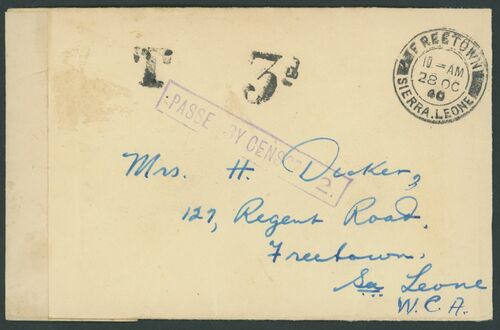 T 3d
FREETOWN
10-AM
28 OC
40
SIERRA.LEONE
PASSED BY CENSOR
2.
Mrs. H. Ducker,
127, Regent Road,
Freetown,
Sa Leone
W.C.A.